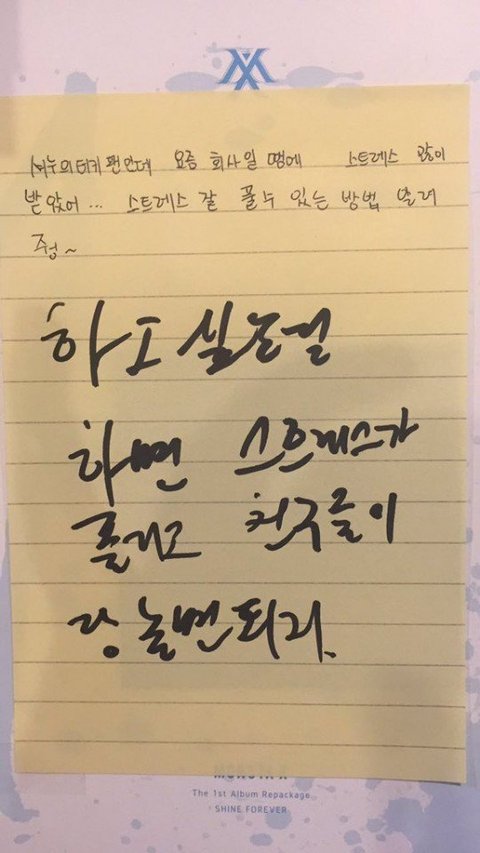 셔누의터키팬인데 요즘 회사일 땜에 스트레스 많이
받았어... 스트레스 잘 풀수 있는 방법 알려
줭~
하고싶은걸
하면 스트레스가
풀리고 친구들이
랑 놀면 되리.
MONSTA X
The 1st Album Repackage
SHINE FOREVER